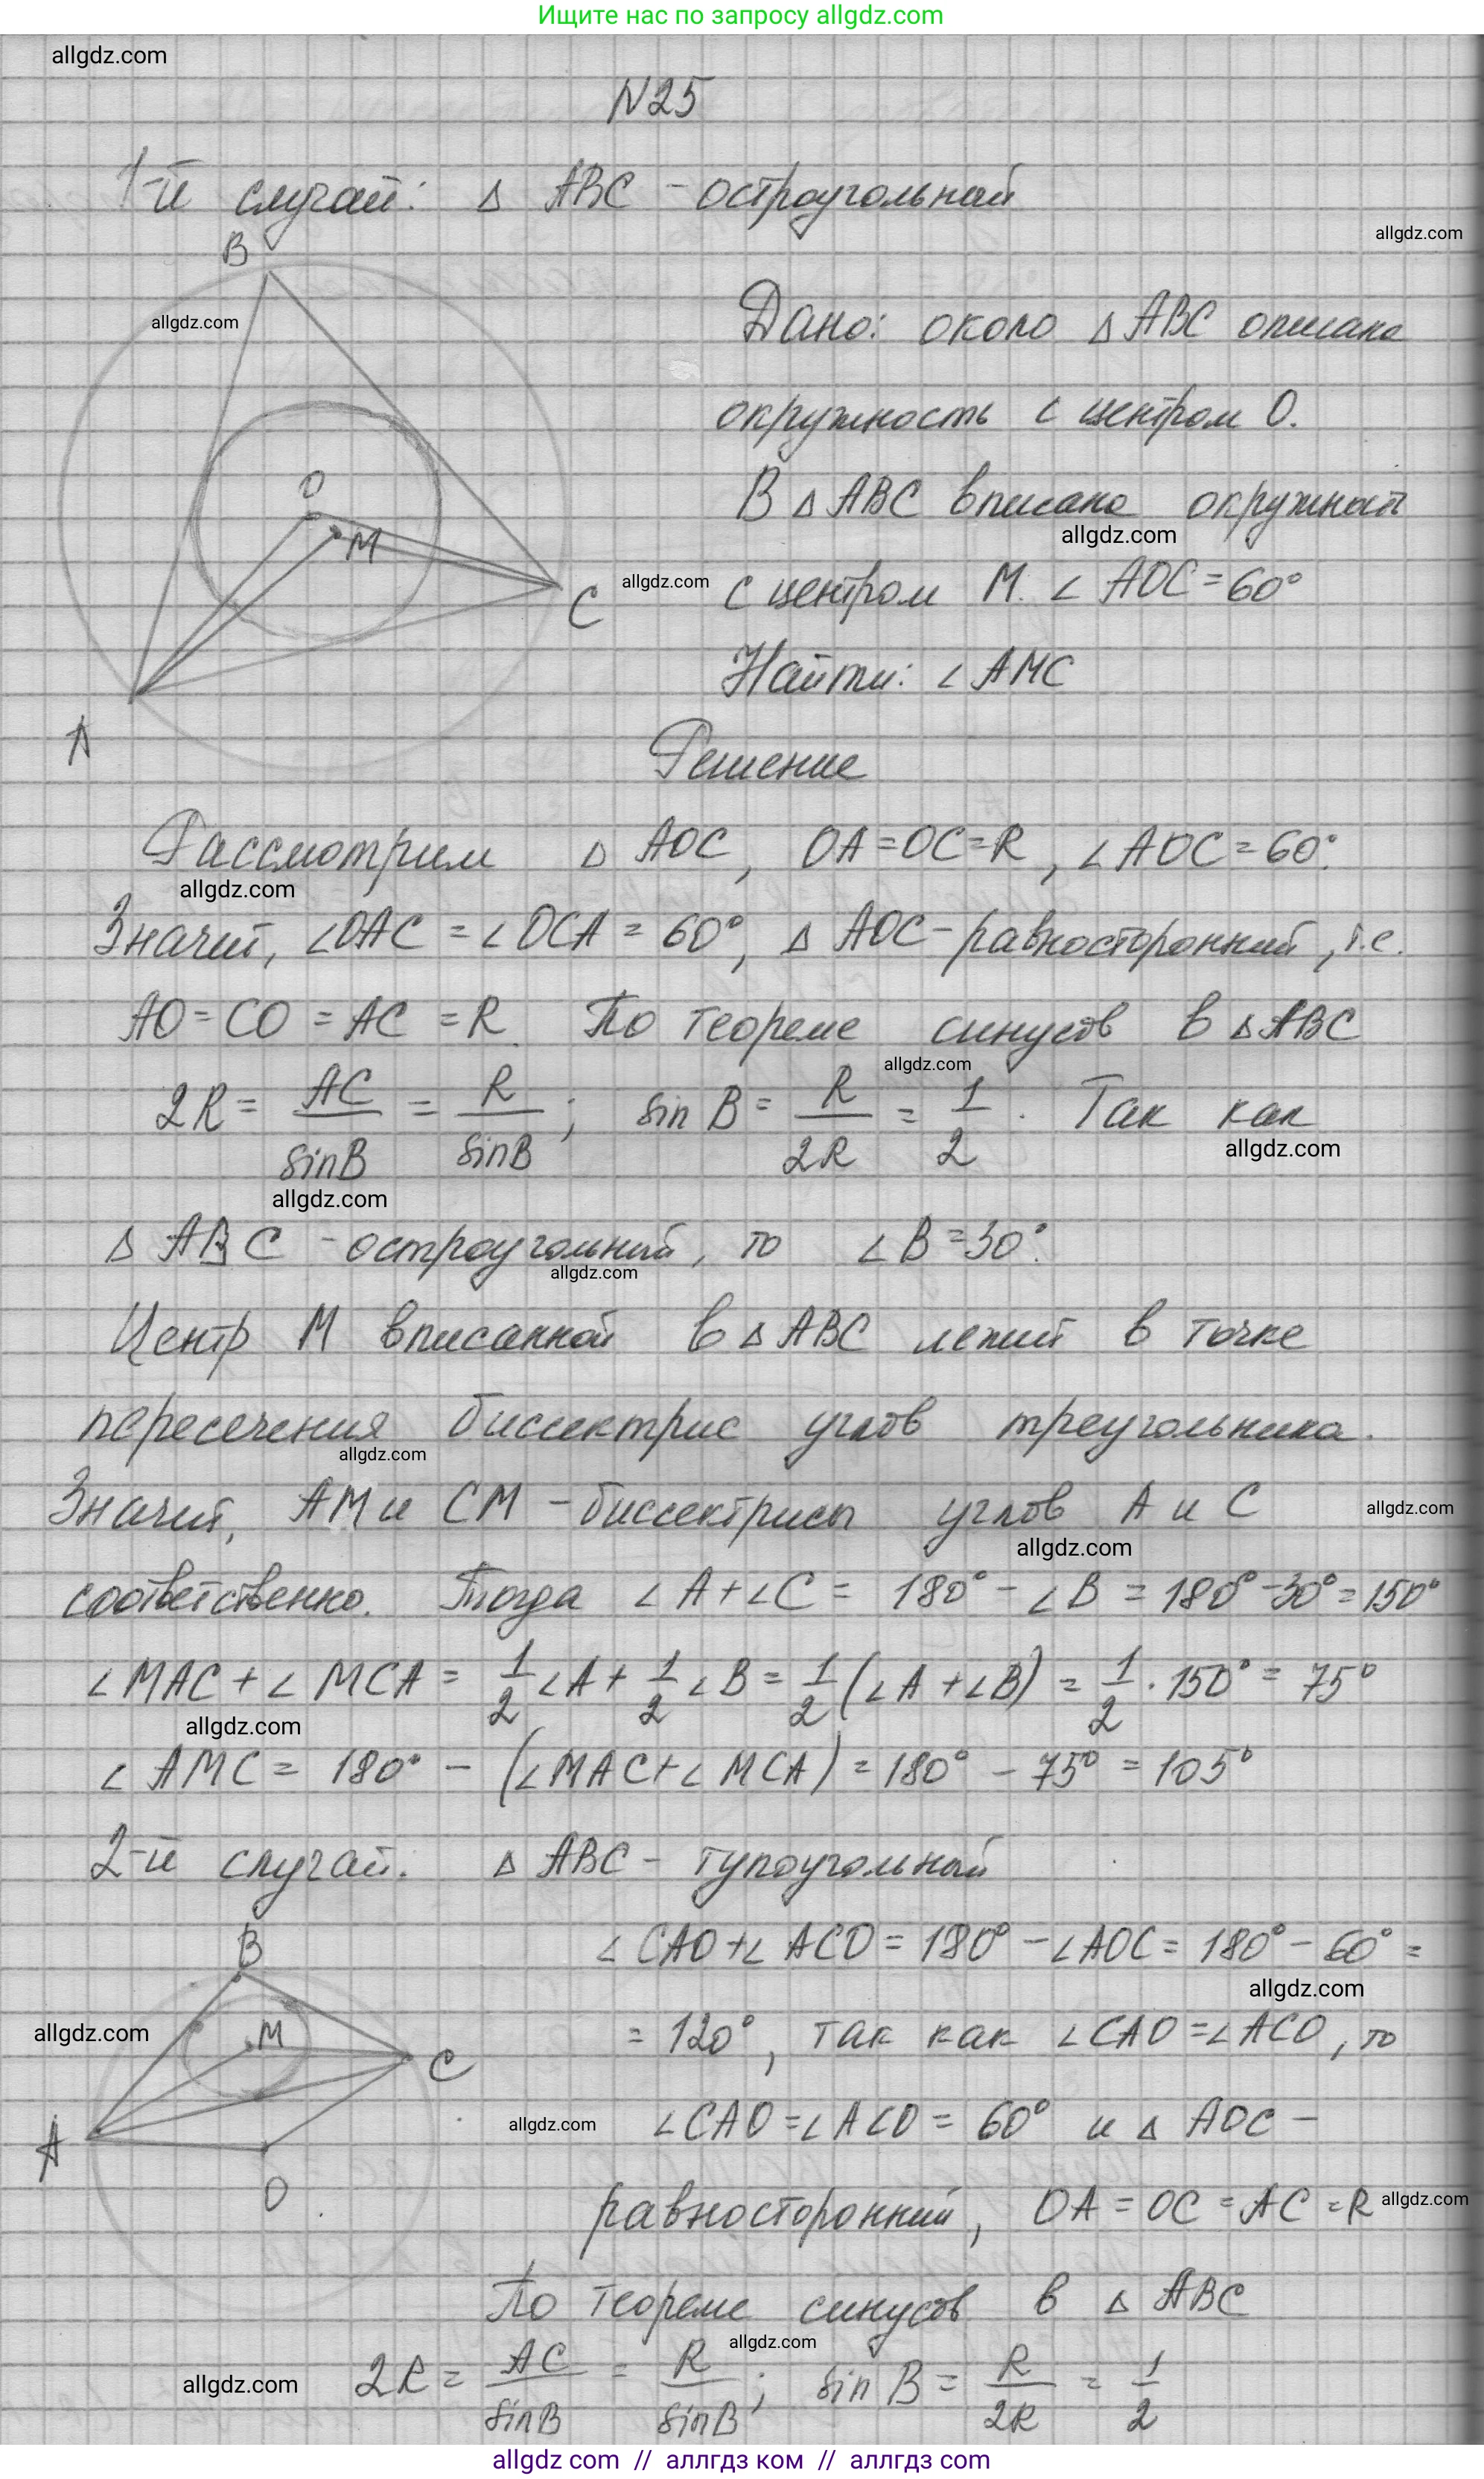 Ищите нас по запросу allgdz.com
allgdz.com
N25
1-й случай: Δ ABC - остроугольный
allgdz.com
B
allgdz.com
Дано: около Δ ABC описана
окружность с центром O.
O
В Δ ABC вписана окружност
allgdz.com
M
allgdz.com
C
с центром M. ∠ AOC = 60°
Найти: ∠ AMC
A
Решение
Рассмотрим Δ AOC, OA = OC = R, ∠ AOC = 60°.
allgdz.com
Значит, ∠OAC = ∠ OCA = 60°, Δ AOC - равносторонний, т.е.
AO = CO = AC = R. По теореме синусов в Δ ABC
allgdz.com
2R = AC/sinB = R/sinB; sin B = R/2R = 1/2. Так как
allgdz.com
allgdz.com
Δ ABC - остроугольный, то ∠ B = 30°.
allgdz.com
Центр M вписанной в Δ ABC лежит в точке
пересечения биссектрис углов треугольника.
allgdz.com
Значит, AM и CM - биссектрисы углов A и C
allgdz.com
allgdz.com
соответственно. Тогда ∠ A + ∠ C = 180° - ∠ B = 180° - 30° = 150°
∠ MAC + ∠ MCA = 1/2 ∠ A + 1/2 ∠ B = 1/2 (∠ A + ∠ B) = 1/2 · 150° = 75°
allgdz.com
∠ AMC = 180° - (∠ MAC + ∠ MCA) = 180° - 75° = 105°
2-й случай. Δ ABC - тупоугольный
B
∠ CAO + ∠ ACO = 180° - ∠ AOC = 180° - 60° =
allgdz.com
allgdz.com
M
C
= 120°, так как ∠ CAO = ∠ ACO, то
A
allgdz.com
∠ CAO = ∠ ACO = 60° и Δ AOC -
O
равносторонний, OA = OC = AC = R
allgdz.com
По теореме синусов в Δ ABC
allgdz.com
allgdz.com
2R = AC/sinB = R/sinB; sin B = R/2R = 1/2
allgdz com // аллгдз ком // аллгдз com